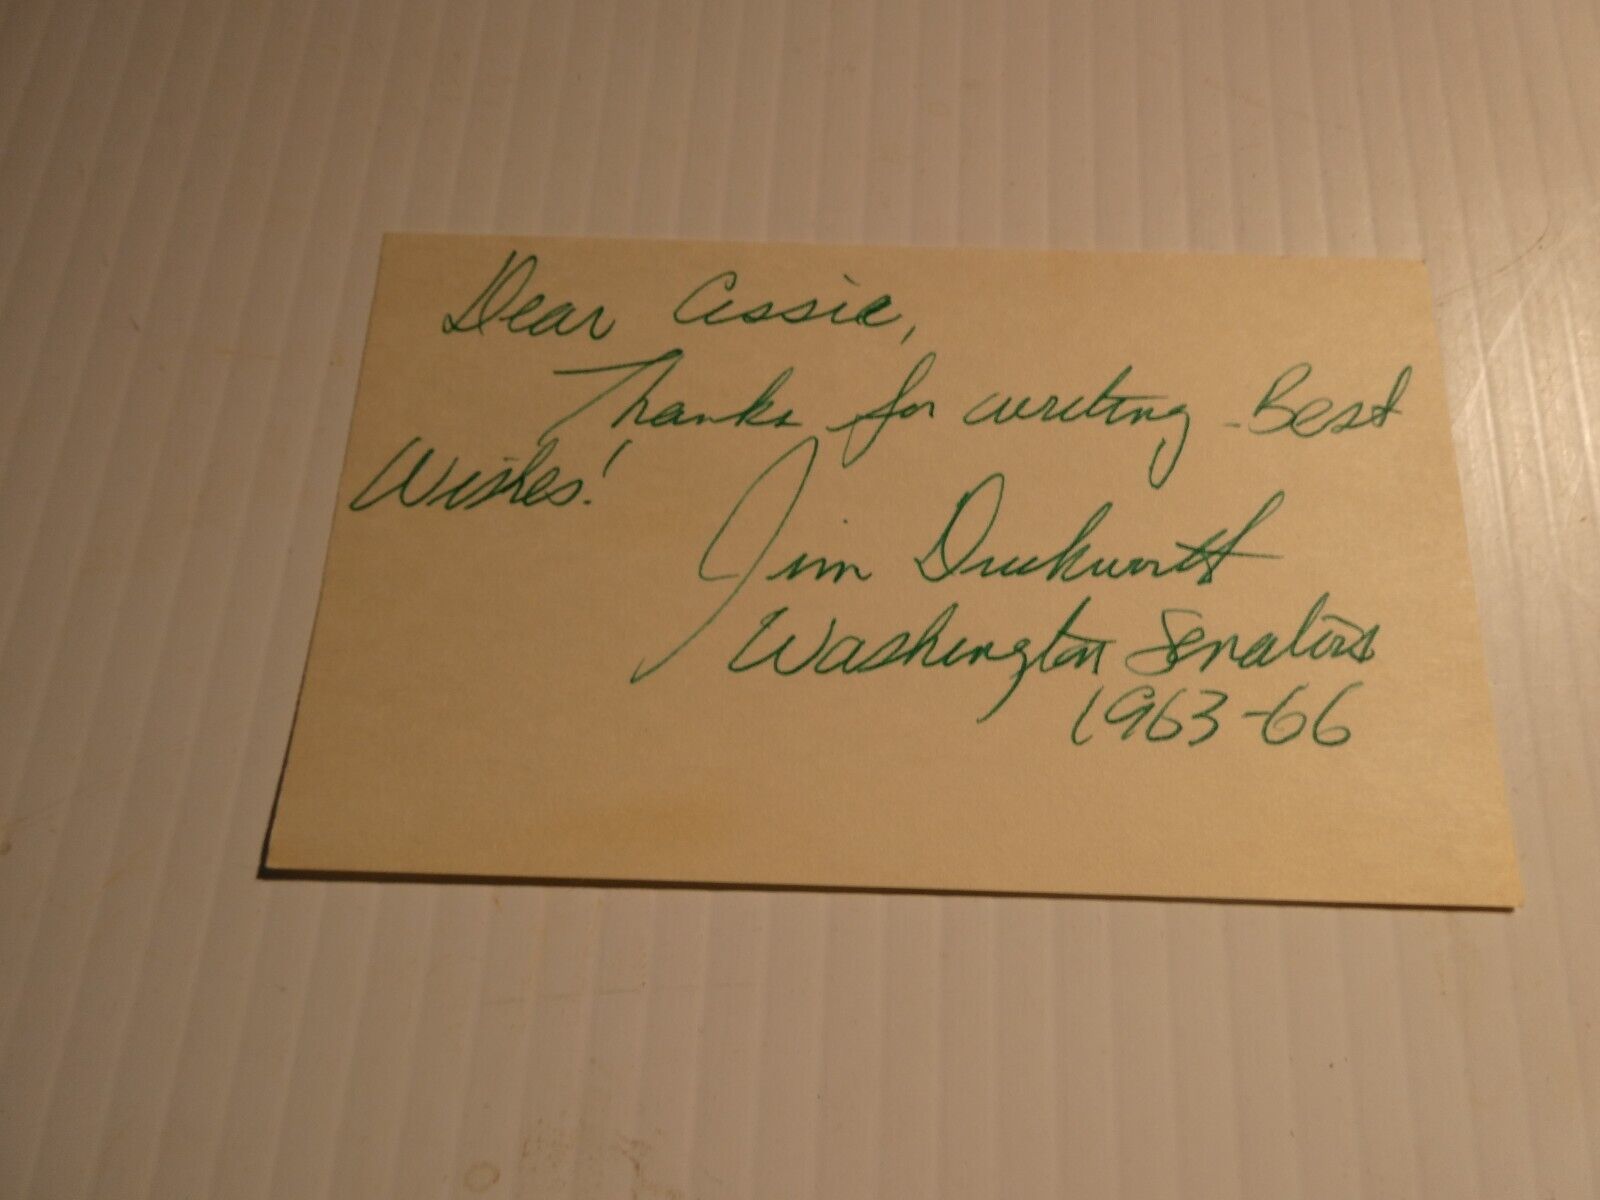 Dear Cissie,
Thanks for writing - Best
Wishes!
Jim Duckworth
Washington Senators
1963-66